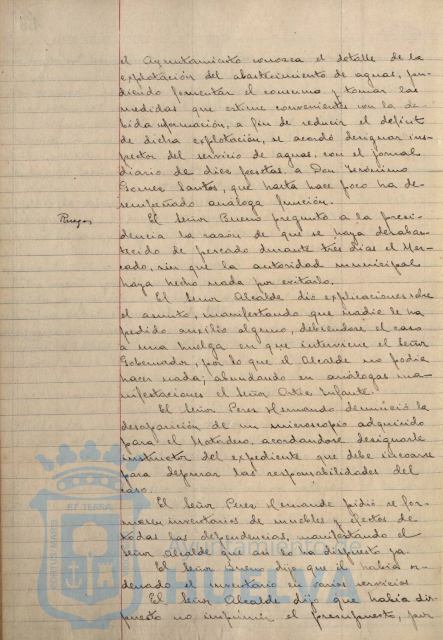 el Ayuntamiento conozca el detalle de la
explotación del abastecimiento de aguas, pu-
diendo fomentar el consumo y tomar las
medidas que estime convenientes con la de-
bida información, a fin de reducir el déficit
de dicha explotación, se acordó designar ins-
pector del servicio de aguas, con el jornal
diario de diez pesetas a Don Jerónimo
Gomez Santos, que hasta hace poco ha de-
sempeñado análoga función.
Ruegos
El Señor Bueno preguntó a la presi-
dencia la razón de que se haya desabas-
tecido de pescado durante tres días el Mer-
cado, sin que la autoridad municipal
haya hecho nada por evitarlo.
El Señor Alcalde dió explicaciones sobre
el asunto, manifestando que nadie le ha
pedido auxilio alguno, debiendose el caso
a una huelga en que interviene el Señor
Gobernador, por lo que el Alcalde no podia
hacer nada; abundando en análogas ma-
nifestaciones el Señor Ortiz Infante.
El Señor Perez Hernando denunció la
desaparición de un microscopio adquirido
para el Matadero, acordandose designarle
instructor del expediente que debe incoarse
para depurar las responsabilidades del
caso.
El Señor Perez Hernando pidió se for-
masen inventarios de muebles y efectos de
todas las dependencias, manifestando el
Señor Alcalde que asi lo ha dispuesto ya.
El Señor Bueno dijo que él había or-
denado el inventario en varios servicios.
El Señor Alcalde dijo que habia dis-
puesto no imprimir el presupuesto, por
PORTUS MARIS
ET TERRAE
HUELVA